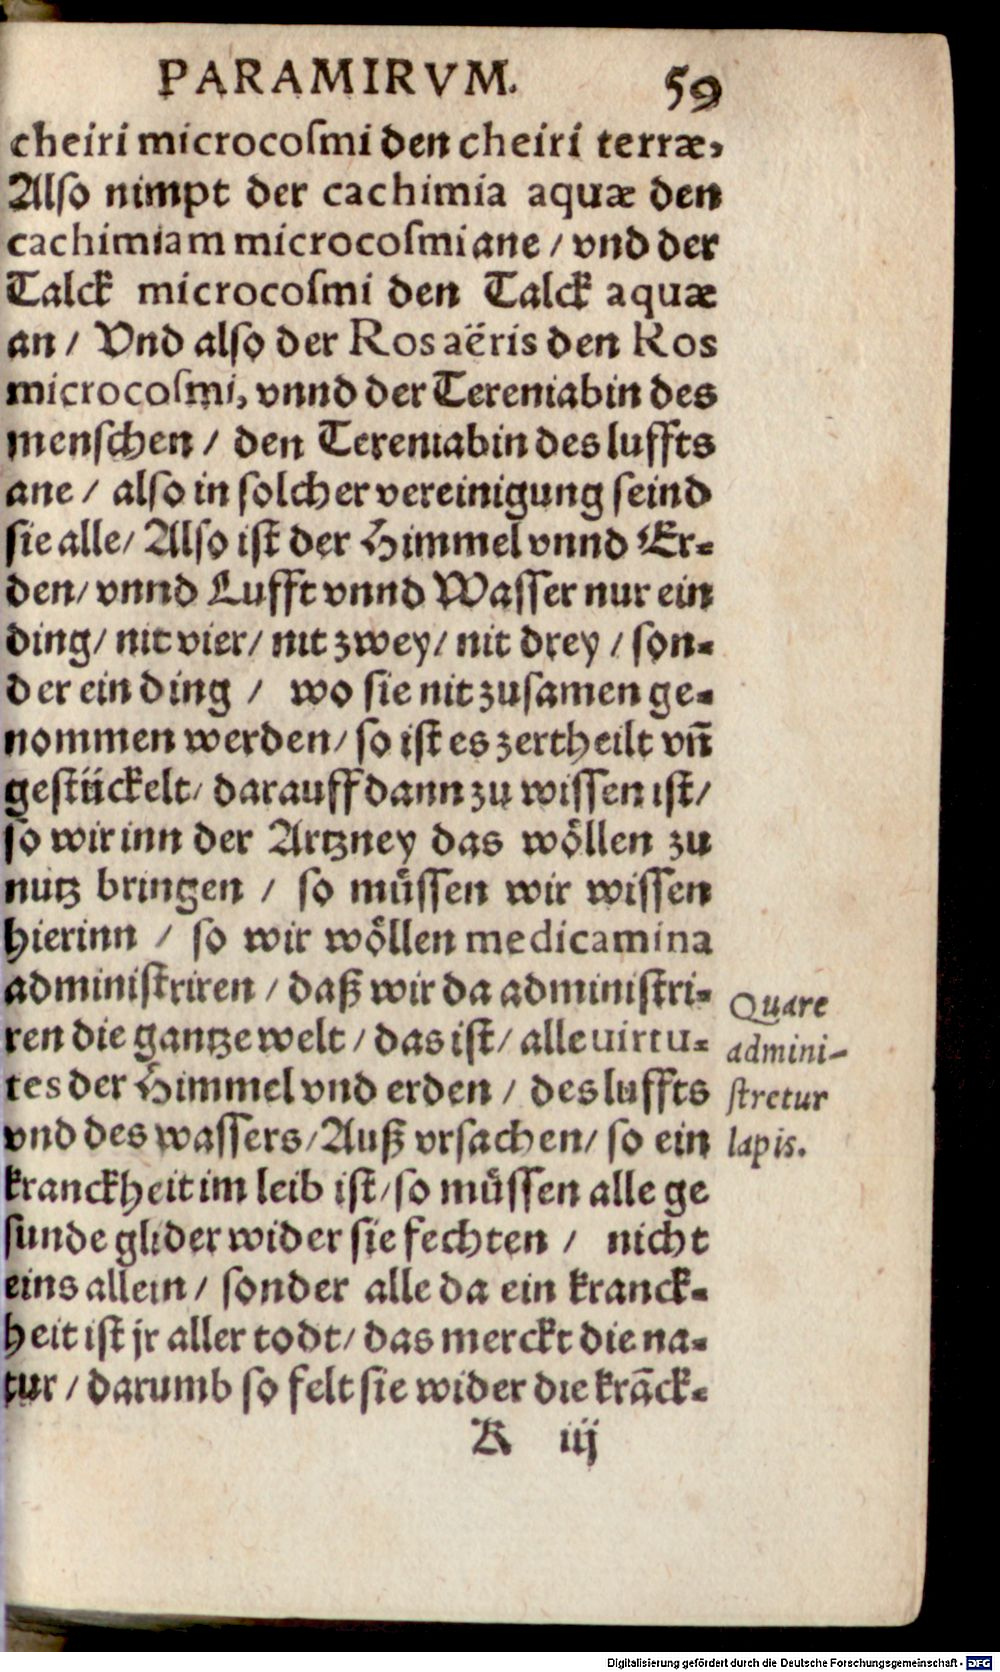 PARAMIRVM. 59
cheiri microcosmi den cheiri terræ,
Also nimpt der cachimia aquæ den
cachimiam microcosmi ane / vnd der
Talck microcosmi den Talck aquæ
an / Vnd also der Ros aëris den Ros
microcosmi, vnnd der Tereniabin des
menschen / den Tereniabin des luffts
ane / also in solcher vereinigung seind
sie alle / Also ist der Himmel vnnd Er=
den / vnnd Lufft vnnd Wasser nur ein
ding / nit vier / nit zwey / nit drey / son=
der ein ding / wo sie nit zusamen ge=
nommen werden / so ist es zertheilt vñ
gestückelt / darauff dann zu wissen ist /
so wir inn der Artzney das wöllen zu
nutz bringen / so müssen wir wissen
hierinn / so wir wöllen medicamina
administriren / daß wir da administri=
ren die gantze welt / das ist / alle uirtu=
tes der Himmel vnd erden / des luffts
vnd des wassers / Auß vrsachen / so ein
kranckheit im leib ist / so müssen alle ge
sunde glider wider sie fechten / nicht
eins allein / sonder alle da ein kranck=
heit ist jr aller todt / das merckt die na=
tur / darumb so felt sie wider die krãck=
K iij
Quare
admini-
stretur
lapis.
Digitalisierung gefördert durch die Deutsche Forschungsgemeinschaft - DFG